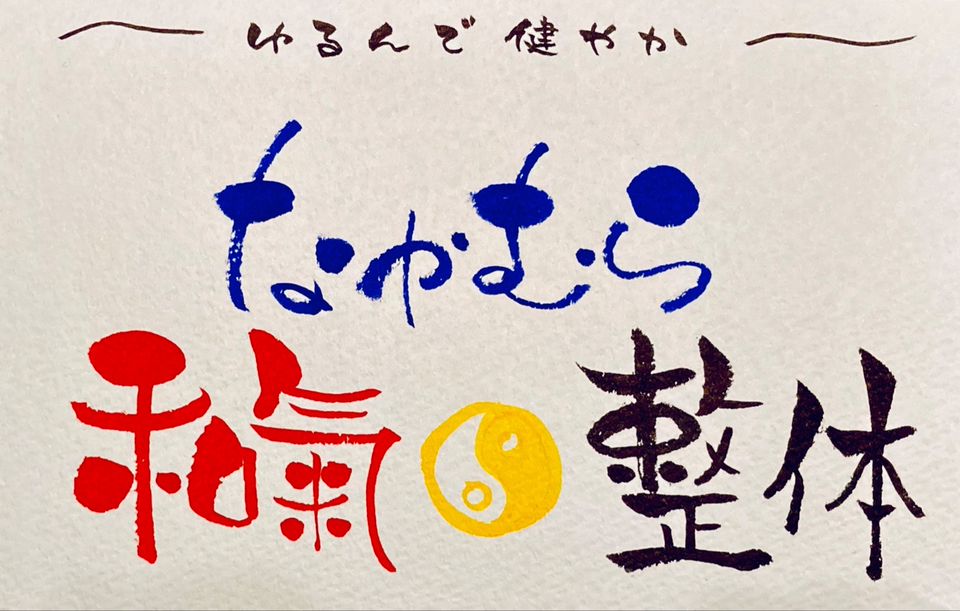 ゆるんで健やか
なかむら
和氣整体